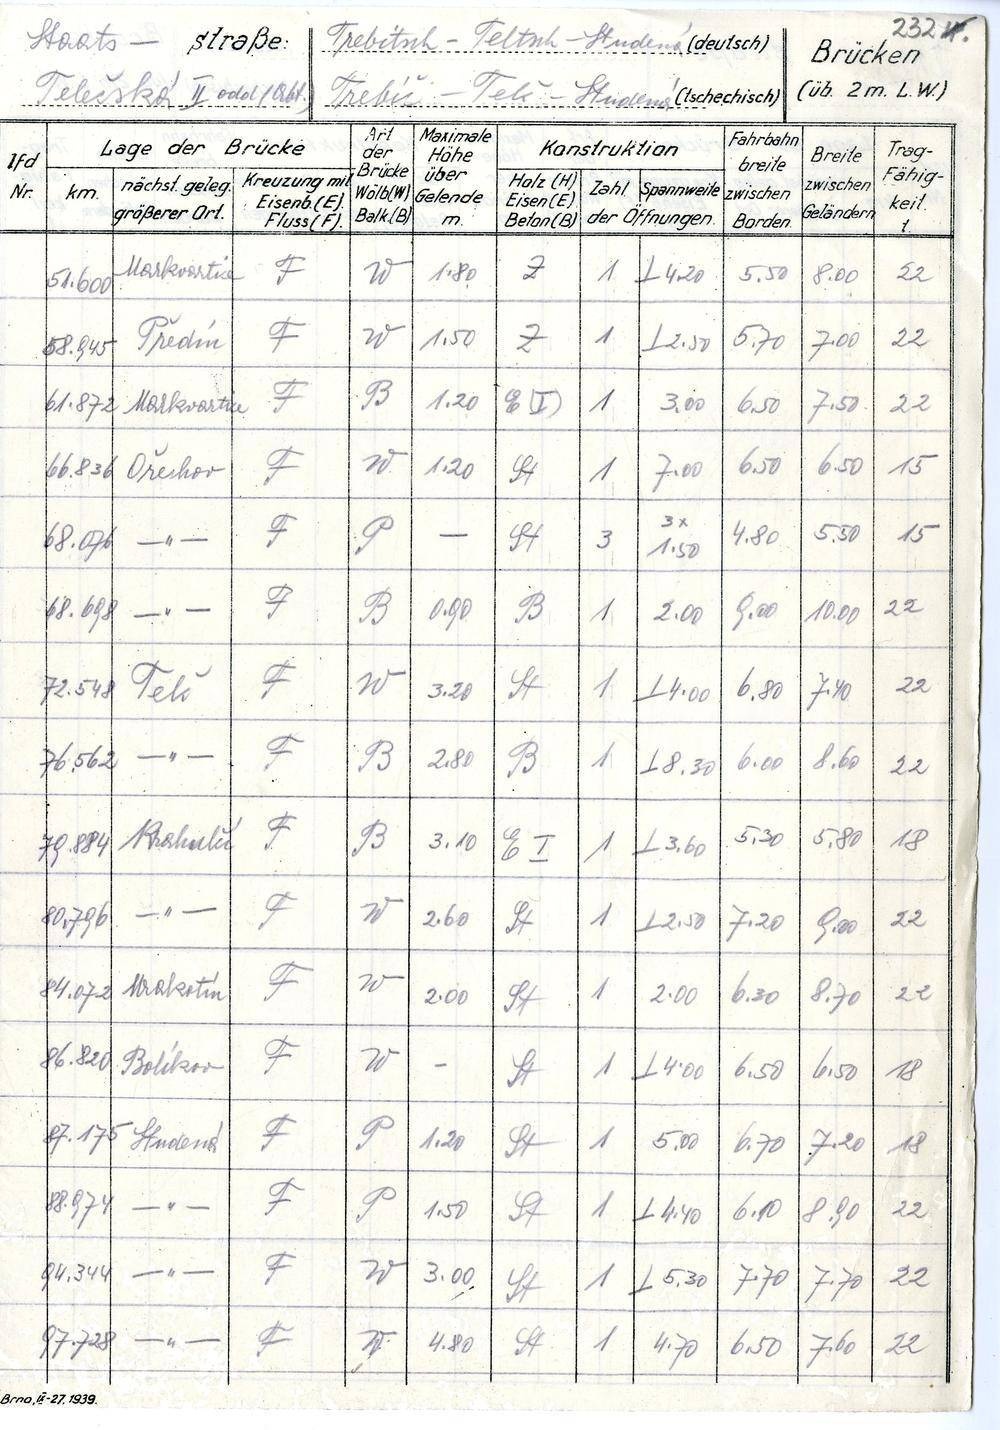 232
Staats — straße: Trebitsch - Teltsch - Studená (deutsch) Brücken
Telečská II odd/Abt. Třebíč - Telč - Studená (tschechisch) (üb. 2 m. L.W.)
lfd Nr. Lage der Brücke Art der Brücke Wölb(W) Balk(B) Maximale Höhe über Gelende m. Konstruktion Fahrbahn breite zwischen Borden. Breite zwischen Geländern Trag-Fähig-keit. t.
km. nächst. geleg. größerer Ort. Kreuzung mit Eisenb.(E). Fluss(F). Holz (H) Eisen(E) Beton(B) Zahl Spannweite der Öffnungen.
51.600 Markvartice F W 1.80 Z 1 ⊥4.20 5.50 8.00 22
58.945 Předín F W 1.50 Z 1 ⊥2.50 5.70 7.00 22
61.872 Markvartice F B 1.20 E(I) 1 3.00 6.50 7.50 22
66.836 Ořechov F W 1.20 St 1 7.00 6.50 6.50 15
68.076 —"— F P — St 3 3x 1.50 4.80 5.50 15
68.698 —"— F B 0.90 B 1 2.00 9.00 10.00 22
72.548 Telč F W 3.20 St 1 ⊥4.00 6.80 7.40 22
76.562 —"— F B 2.80 B 1 ⊥8.30 6.00 8.60 22
79.884 Krahulčí F B 3.10 E I 1 ⊥3.60 5.30 5.80 18
80.796 —"— F W 2.60 St 1 ⊥2.50 7.20 9.00 22
84.072 Mrakotín F W 2.00 St 1 2.00 6.30 8.70 22
86.820 Bolíkov F W - St 1 ⊥4.00 6.50 6.50 18
87.175 Studená F P 1.20 St 1 5.00 6.70 7.20 18
88.974 —"— F P 1.50 St 1 ⊥4.40 6.10 8.90 22
94.344 —"— F W 3.00 St 1 ⊥5.30 7.70 7.70 22
97.728 —"— F W 4.80 St 1 4.70 6.50 7.60 22
Brno, IX-27, 1939.